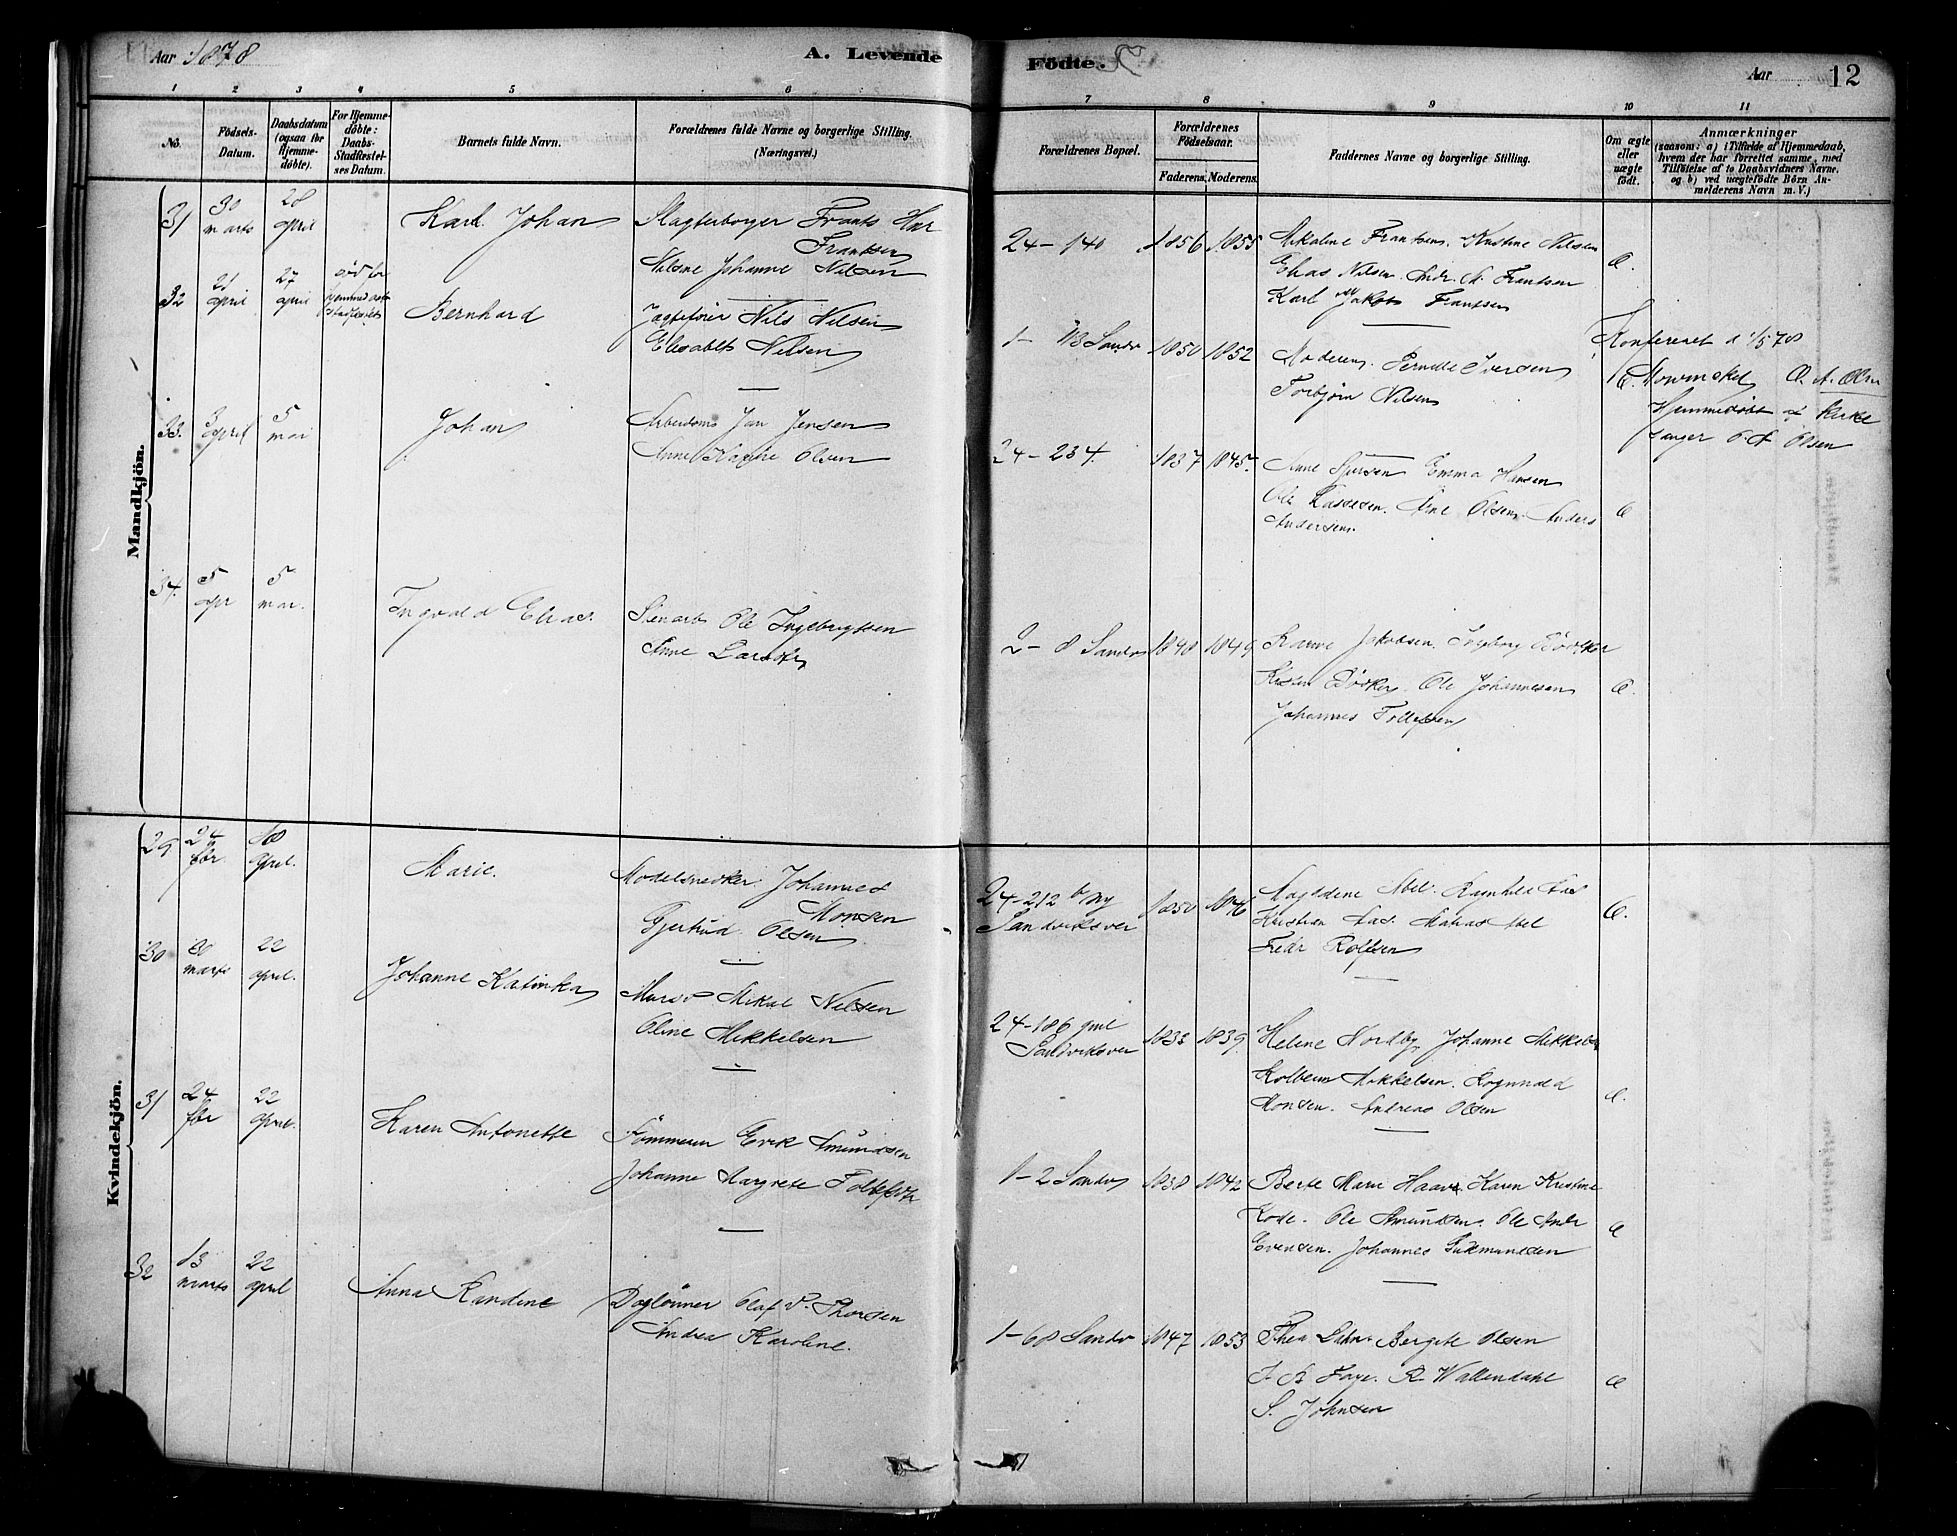 Aar 1878
A. Levende
Födte.
Aar
12
1 2 3 4 5 6 7 8 9 10 11
No.
Födsels-
Datum.
Daabsdatum
(ogsaa for
Hjemme-
döbte).
For Hjemme-
döbte:
Daabs-
Stadfæstel-
ses Datum.
Barnets fulde Navn.
Forældrenes fulde Navne og borgerlige Stilling.
(Næringsvei.)
Forældrenes Bopæl.
Forældrenes
Födselsaar.
Faderens. Moderens.
Faddernes Navne og borgerlige Stilling.
Om ægte
eller
uægte
födt.
Anmærkninger
(saasom: a) i Tilfælde af Hjemmedaab,
hvem der har forrettet samme, med
Tilföielse af to Daabsvidners Navne.
og b) ved uægtefödte Börn An-
melderens Navn m. V.)
Mandkjön.
31
30
marts
28
april
Karl Johan
Slagterborger Frants
Frantsen
Nilsine Johanne Nilsen
24-140
1856 1855
Mikaline Frantsen. Kristine Nilsen
Elias Nilsen. Andr. Frantsen
Karl Jakob Frantsen
32
21
april
27
april
Bernhard
Jagtefører Nils Nilsen
Elisabet Nilsen
1- 113 Sandv
1850 1852
Moderen. Pernille Iversen
Torbjörn Nilsen
Konfereret d 1/5 78
Mowinckel
Hjemmedøbt af Kirke
sanger O. A. Olsen
33.
3
april
5
mai
Johan
Arbeidsm Jan Jensen
Anne Olsen
24-234.
1837 1845.
Anne Sjursen Emma Hansen
Ole Lassesen. Arne Olsen. Anders
Andersen.
34.
5
apr
5
mai.
Ingvald Elias.
Stenarb Ole Ingebrigtsen
Anne Larsdtr
2-8 Sandv
1848 1849
Jakobsen. Ingborg Bödker
Bödker. Ole Johannesen
Johannes Tollefsen
Kvindekjön.
29
24
fbr.
april.
Marie.
Modelsnedker Johannes
Monsen
Gjertrud Olsen
24-212 b ny
Sandviksvei
1850 1846
Magdalene Abel. Ragnhild Aas
Kristian Aas. Matias Abel
Fredr Rolfsen
30
30
marts
22
april.
Johanne Katinka
Murer Mikal Nilsen
Oline Mikkelsen
24-186 gml
Sandviksvei
1833 1839
Helene Nordby Johanne Mikkels
Kolbein Mikkelsen. Rognvald
Monsen. Andreas Olsen
31
24
fbr
22
april.
Karen Antonette
Tömmerm Erik Amundsen
Johanne Margrete Tollefsdtr
1-2 Sandv
1838 1842
Berte Marie Haave Karen Kristine
Kode. Ole Amundsen. Ole Andr
Evensen. Johannes Gudmundsen
32
13
marts
22
april
Anna Randine
Daglönner Olaf P. Thorsen
Andrea Karoline.
1-68 Sandv
1847 1853
Thea Dahn. Bergite Olsen
J. B. Faye. R. Wallendahl
S. Johnsen